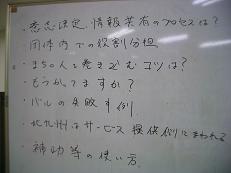 ・意志決定、情報共有のプロセスは?
・団体内での役割分担
・まちの人を巻き込むコツは?
・もうかってますか?
・バルの失敗事例
・北九州はサービス提供側にまわれる
・補助等の使い方